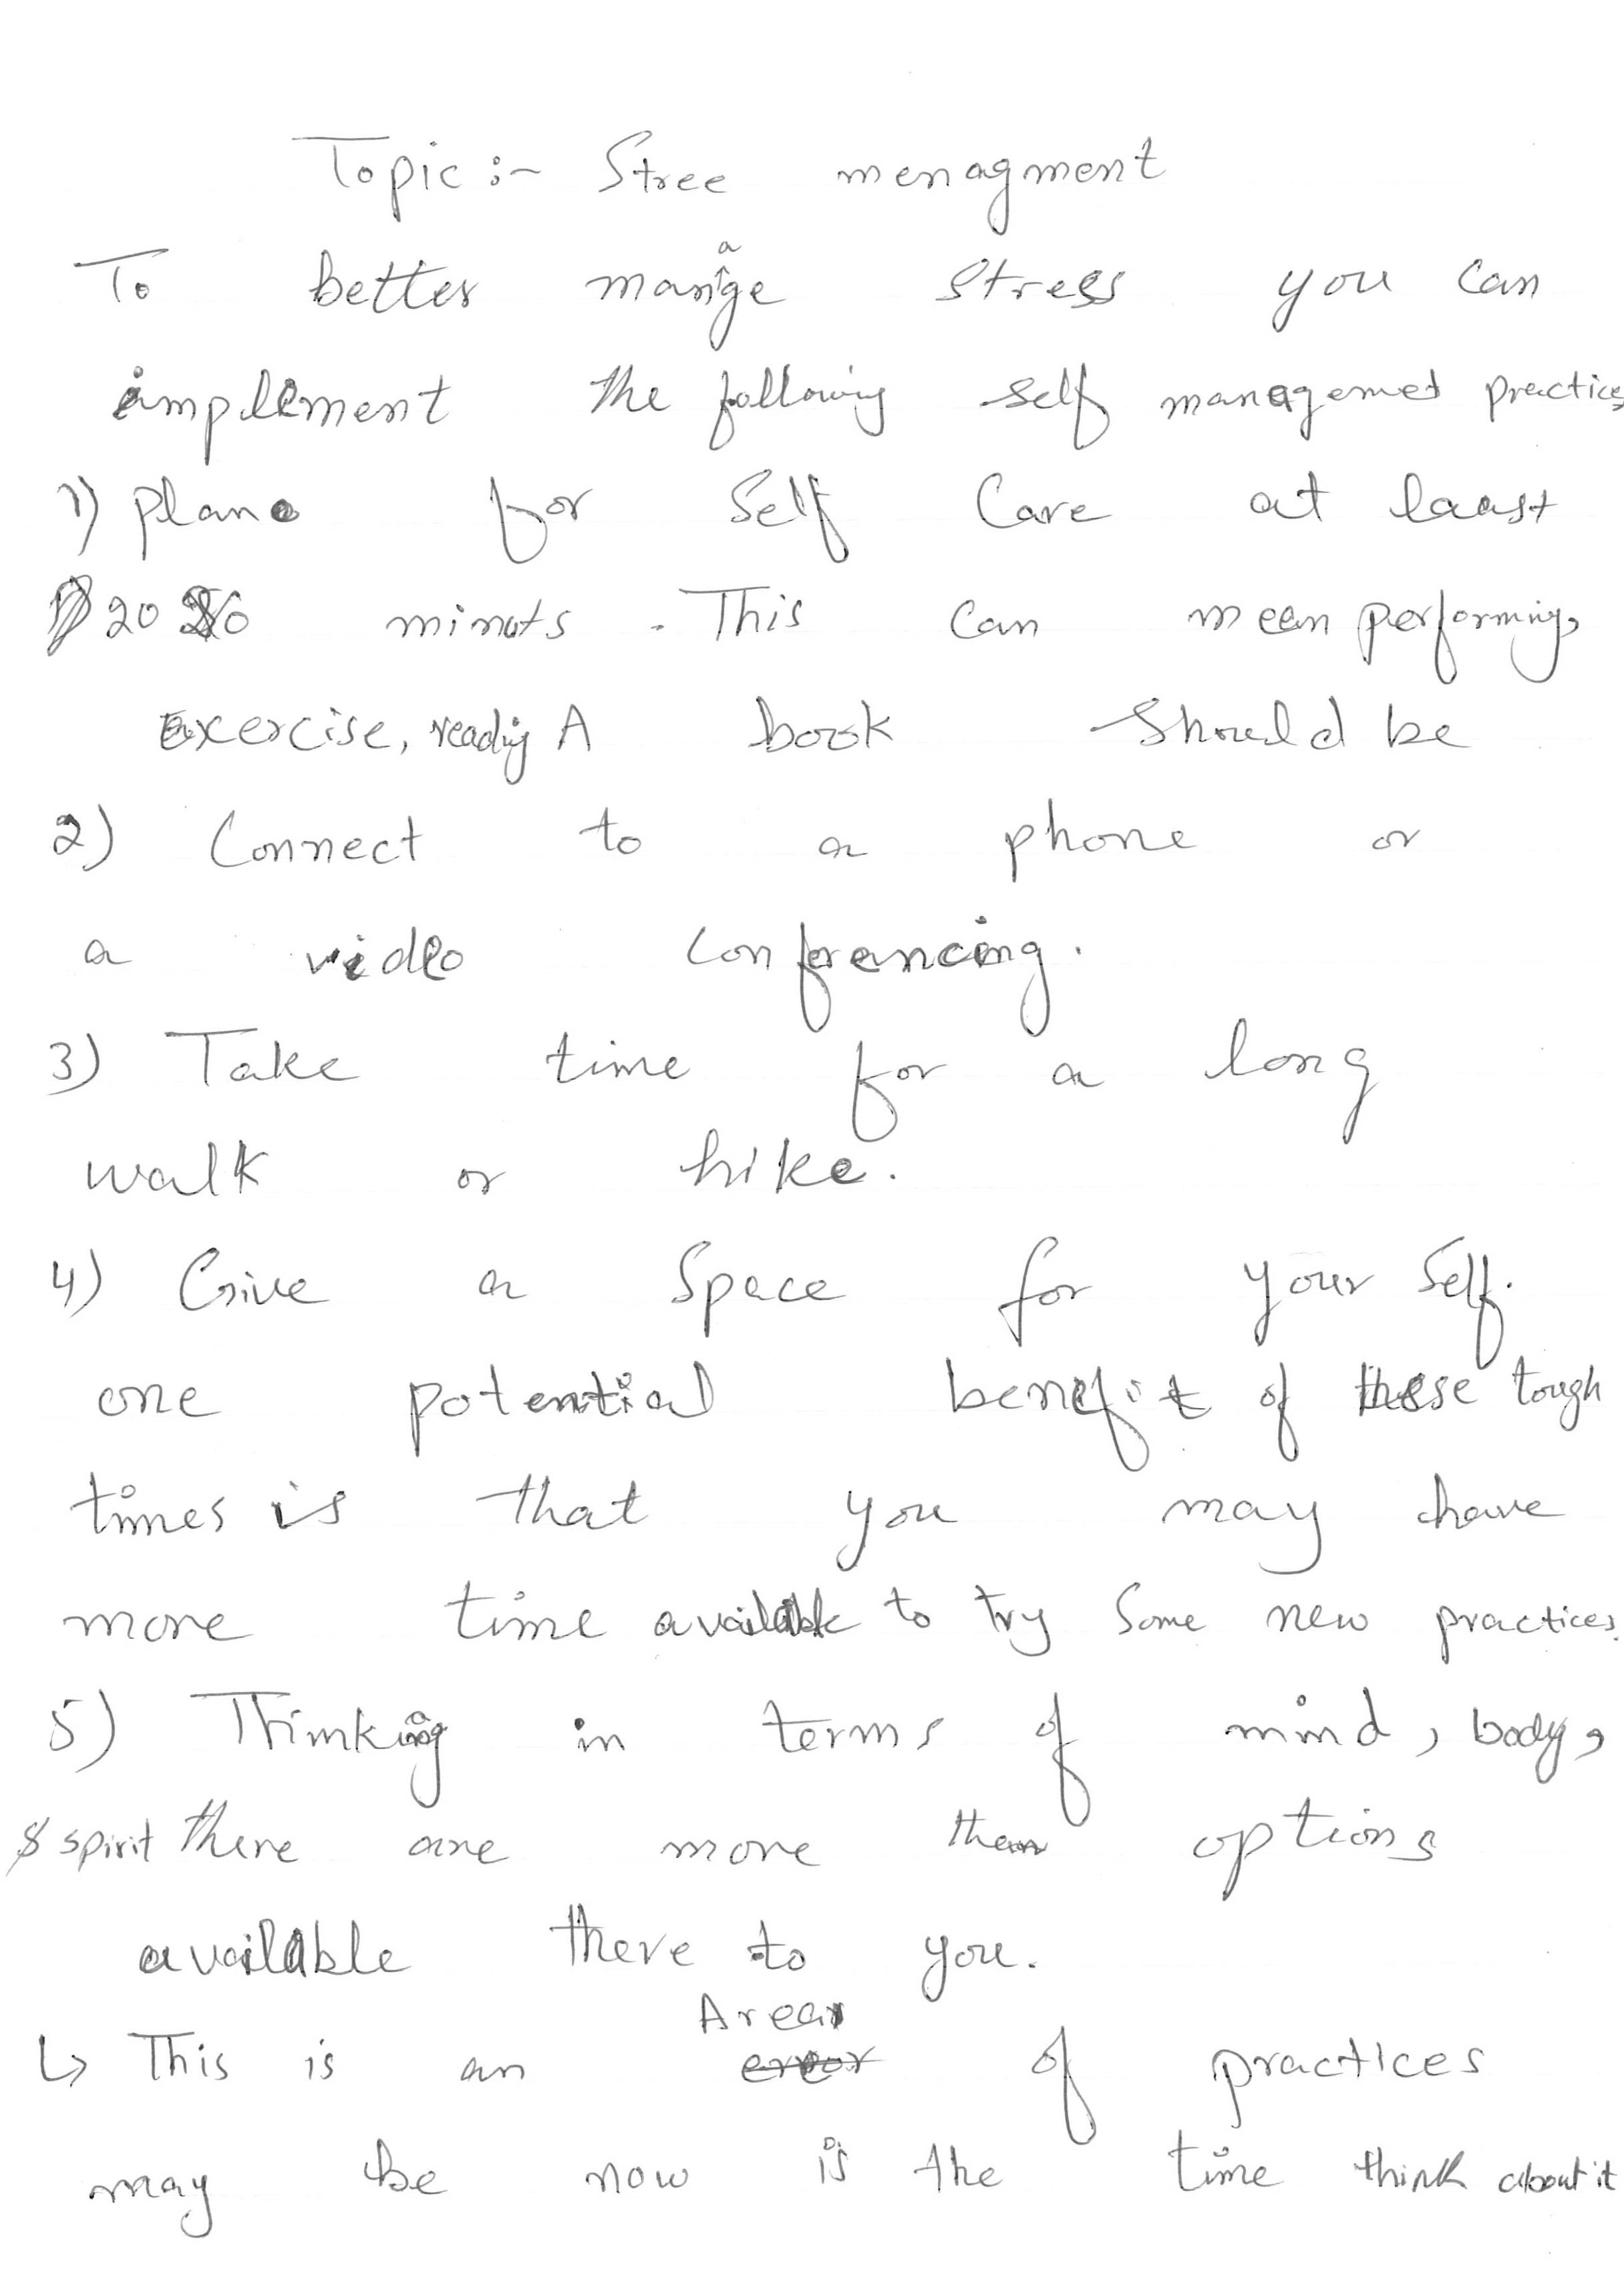 Topic :- Stree menagment
To better manage stress you can
implement the following self managemet practices
1) plan for Self Care at laast
20 minuts . This can mean performing,
exercise, readig A book should be
2) Connect to a phone or
a video Conferencing.
3) Take time for a long
walk or hike.
4) Give a Space for your Self.
one potential benefit of these tough
times is that you may have
more time available to try Some new practices.
5) Thinking in terms of mind, body,
& spirit there are more than options
available there to you.
↳ This is an Area of practices
may be now is the time think about it